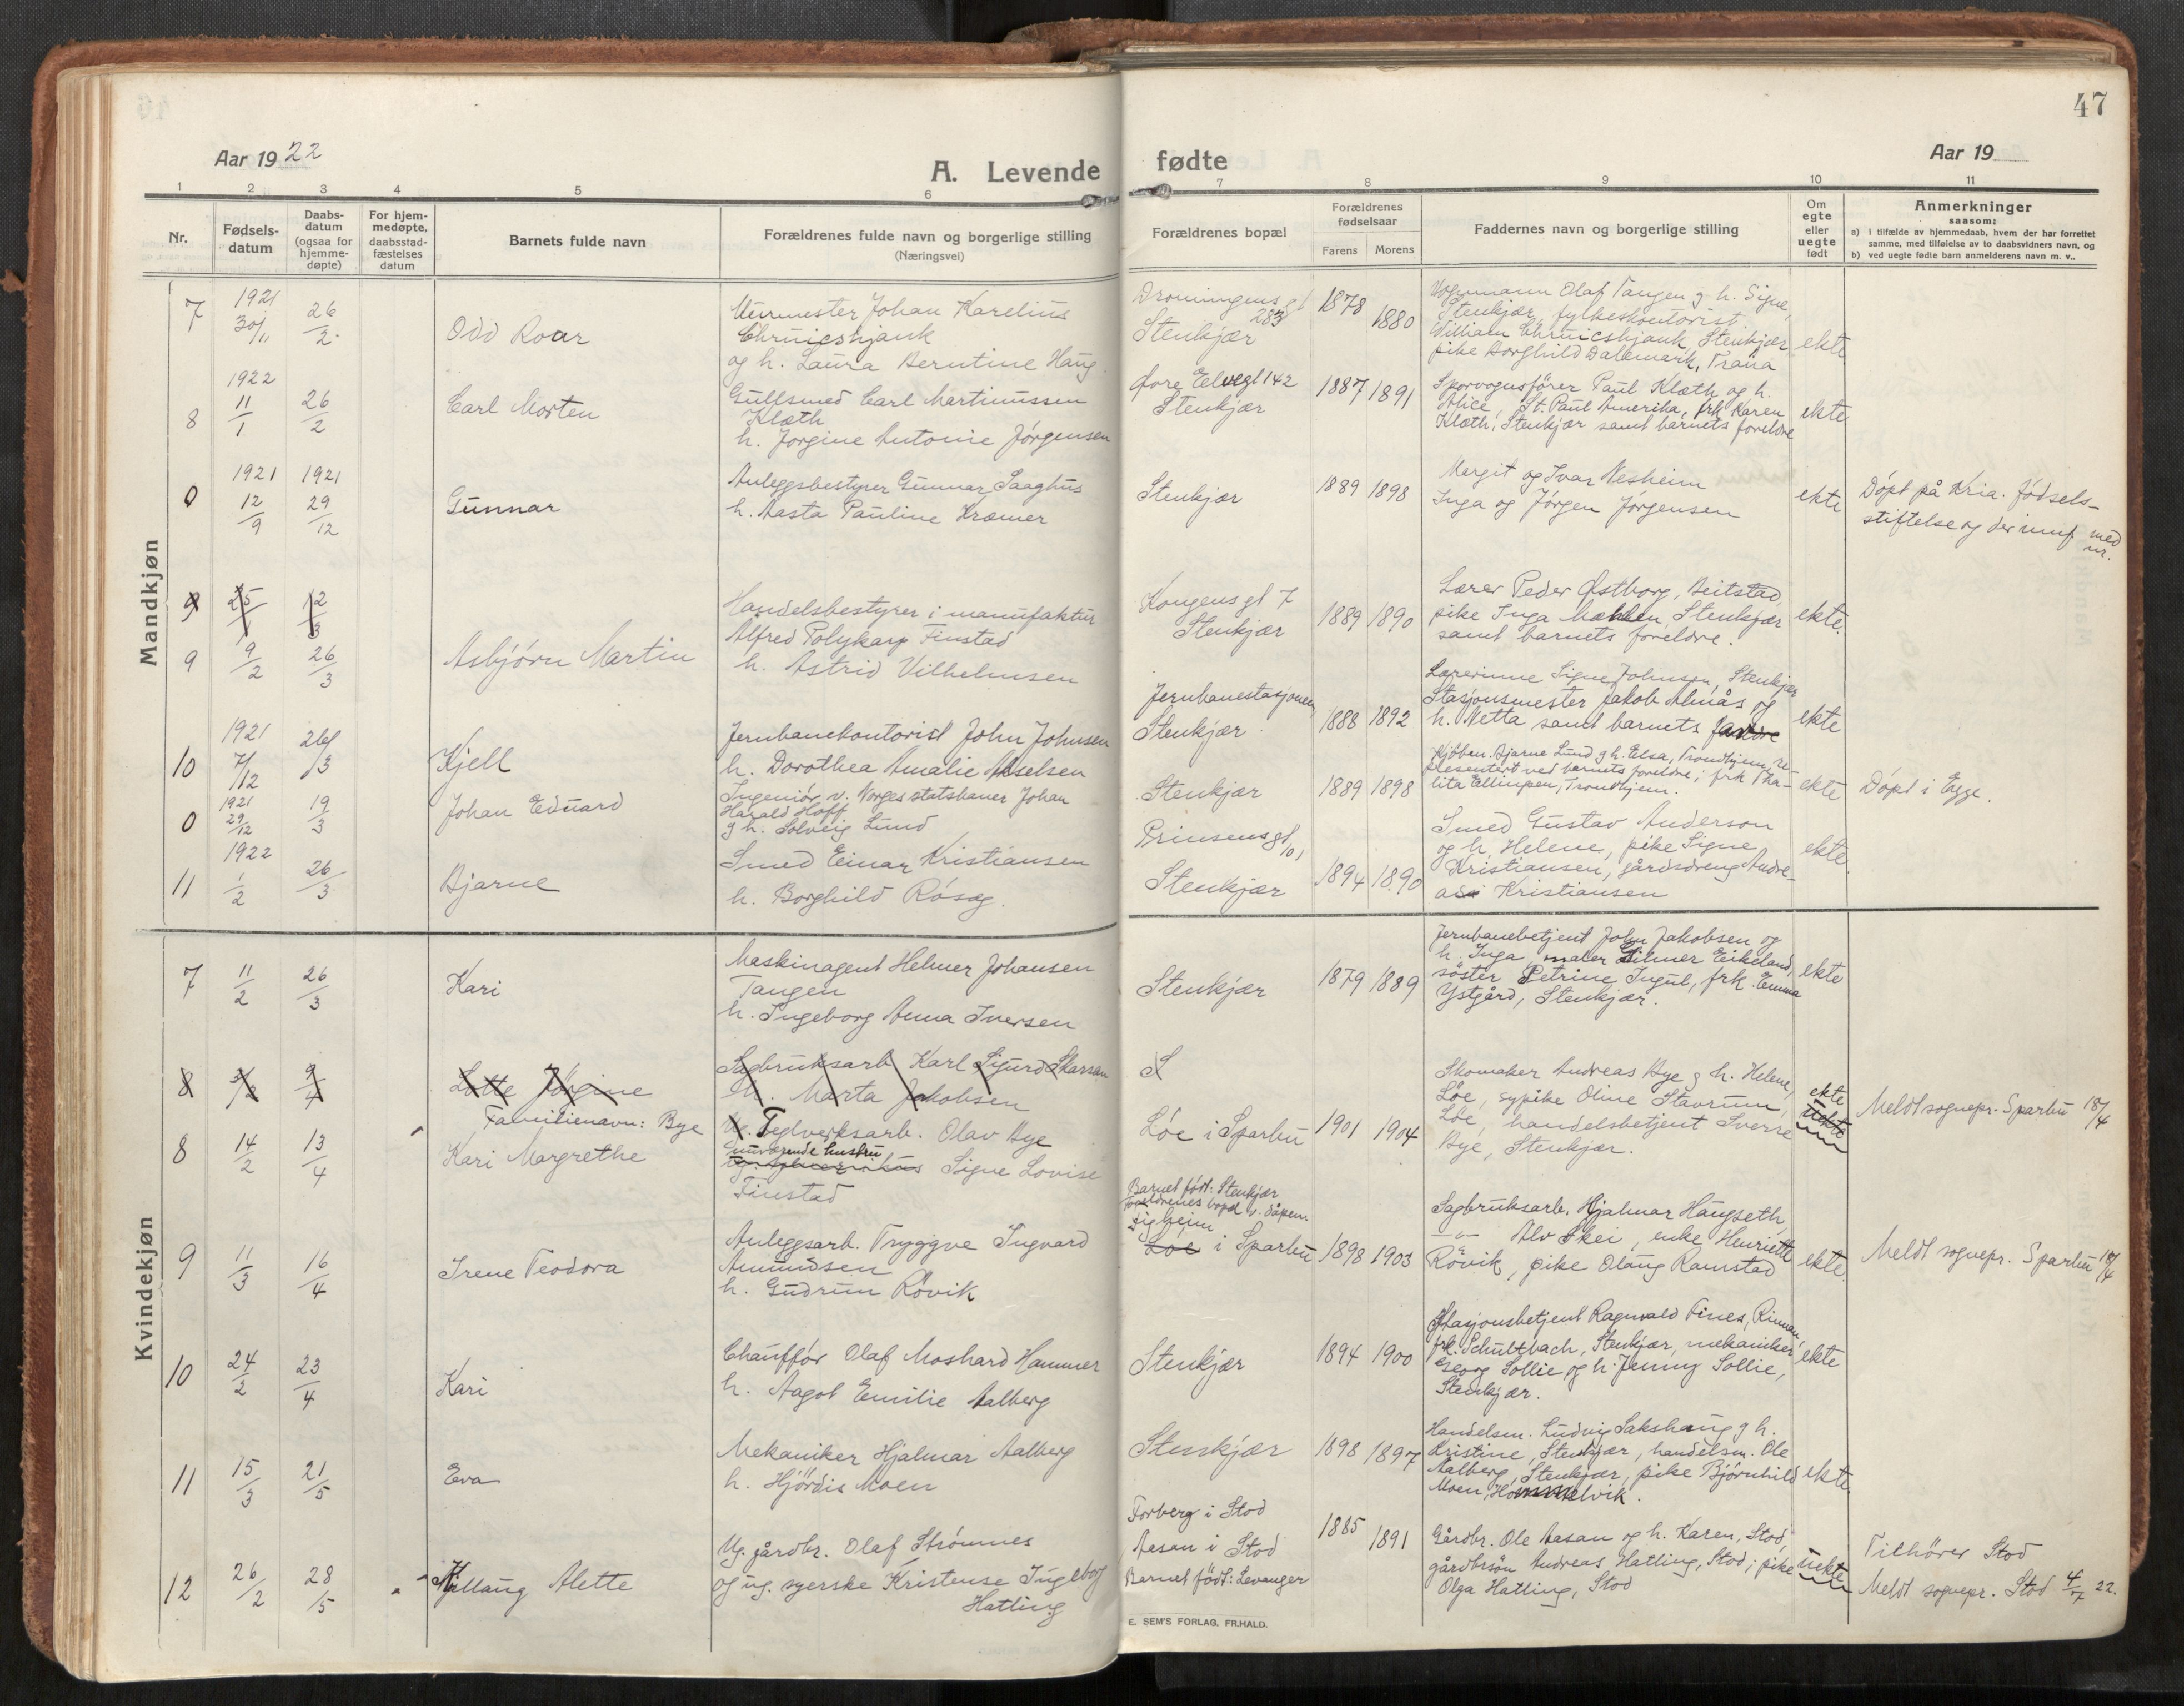 47
Aar 1922
A. Levende fødte
Aar 19
1 2 3 4 5 6 7 8 9 10 11
Nr.
Fødsels-
datum
Daabs-
datum
(ogsaa for
hjemme-
døpte)
For hjem-
medøpte,
daabsstad-
fæstelses
datum
Barnets fulde navn
Forældrenes fulde navn og borgerlige stilling
(Næringsvei)
Forældrenes bopæl
Forældrenes
fødselsaar
Farens Morens
Faddernes navn og borgerlige stilling
Om
egte
eller
uegte
født
Anmerkninger
saasom:
a) i tilfælde av hjemmedaab, hvem der har forrettet
samme, med tilføielse av to daabsvidners navn, og
b) ved uegte fødte barn anmelderens navn m. v..
Mandkjøn
7
1921
30/11
26/2
Odd Roar
Murmester Johan Karelius
og h. Laura Berntine Haug
Dronningensgt
283
Stenkjær
1878
1880
Vognmann Olaf Tangen g. h. Signe,
Stenkjær, fylkeskontorist
William Stenkjær
pike Borghild Dalemark, Trana
ekte
8
1922
11/1
26/2
Carl Morten
Gullsmed Carl Martinussen
Klæth
h. Jørgine Antonie Jørgensen
Øvre Elvegt 142
Stenkjær
1887 1891
Sporvognsfører Paul Klæth og h.
Alice, St. Paul Amerika, frk Karen
Klæth, Stenkjær samt barnets foreldre
ekte
0
1921
12/9
1921
29/12
Gunnar
Anleggsbestyrer Gunnar Saaghus
h. Aasta Pauline Kræmer
Stenkjær
1889 1898
Margit og Ivar Nesheim
Inga og Jørgen Jørgensen
ekte
Døpt på Kria. fødsels-
stiftelse og der innf med
nr.
9
25/1
12/3
9
9/2
26/3
Asbjørn Martin
Handelsbestyrer i manufaktur
Alfred Polykarp Finstad
h. Astrid Vilhelmsen
Kongensgt 7
Stenkjær
1889 1890
Lærer Peder Østborg, Beitstad,
pike Inga Mæhlen, Stenkjær
samt barnets foreldre.
ekte.
10
1921
7/12
26/3
Kjell
Jernbanekontorist John Johnsen
h. Dorothea Amalie Akselsen
Jernbanestasjonen
Stenkjær
1888 1892
Lærerinne Signe Johnsen, Stenkjær
Stasjonsmester Jakob Almås og
h. Netta samt barnets foreldre
ekte
0
1921
29/12
19/3
Johan Eduard
Ingeniør v. Norges statsbaner Johan
Harald Hoff
g h. Solveig Lund
Stenkjær
1889 1898
Kjøbm. Bjarne Lund g h. Elsa, Trondhjem, re-
presentert ved barnets foreldre; frk Tha-
lita Ellingsen, Trondhjem.
ekte
Døpt i Egge.
11
1922
1/2
26/3
Bjarne
Smed Einar Kristiansen
h. Borghild Røsæg.
Prinsensgt
101
Stenkjær
1894 1890
Smed Gustav Anderson
og h. Helene, pike Signe
Kristiansen, gårdsdreng Andre-
as Kristiansen
ekte.
Kvindekjøn
7
11/2
26/3
Kari
Maskinagent Helmer Johansen
Tangen
h. Ingeborg Anna Iversen
Stenkjær
1879 1889
Jernbanebetjent John Jakobsen og
h. Inga, maler Hilmer Eikeland,
søster Petrine Ingul, frk. Emma
Ystgård, Stenkjær.
ekte
8
9/4
Lotte Jørgine
Sagbruksarb. Karl Sigurd Skarsan
h. Marta Jakobsen
S
8
14/2
13/4
Familienavn: Bye
Kari Margrethe
Ug. Teglverksarb. Olav Bye
nuværende hustru
Signe Lovise
Finstad
Løe i Sparbu
1901 1904
Skomaker Andreas Bye g h. Helene,
Løe, sypike Oline Stavrum,
Løe, handelsbetjent Sverre
Bye, Stenkjær.
ekte
uekte
Meldt sognepr. Sparbu 18/4
9
11/3
16/4
Irene Teodora
Anleggsarb. Tryggve Ingvard
Amundsen
h. Gudrun Røvik
Barnet født: Stenkjær
Foreldrenes bopel v. dåpen:
Løe i Sparbu
1898 1903
Sagbruksarb. Hjalmar Haugseth
-"- Alv Skei, enke Henriette
Røvik, pike Olaug Ramstad
ekte.
Meldt sognepr. Sparbu 18/4
10
24/2
23/4
Kari
Chauffør Olaf Moshard Hammer
h. Aagot Emilie Aalberg
Stenkjær
1894 1900
Stasjonsbetjent Ragnvald Fines, Rinnan,
frk. Schultzbach, Stenkjær, mekaniker
Georg Sollie og h. Jenny Sollie,
Stenkjær.
ekte
11
15/3
21/5
Eva
Mekaniker Hjalmar Aalberg
h. Hjørdis Moen
Stenkjær
1898 1897
Handelsm. Ludvig Sakshaug g h.
Kristine, Stenkjær, handelsm. Ole
Aalberg, Stenkjær, pike Bjørnhild
Moen, Hommelvik.
ekte.
12
26/2
28/5
Killaug Alette
Ug. gårdbr. Olaf Strømnes
og ug. syerske Kristense Ingeborg
Hatling
Forberg i Stod
Aasan i Stod
Barnet født: Levanger
1885
1891
Gårdbr. Ole Aasan og h. Karen, Stod,
gårdbrsøn Andreas Hatling, Stod; pike
Olga Hatling, Stod
uekte
Tilhører Stod
Meldt sognepr. Stod 4/7 22.
E. SEM'S FORLAG, FR.HALD.